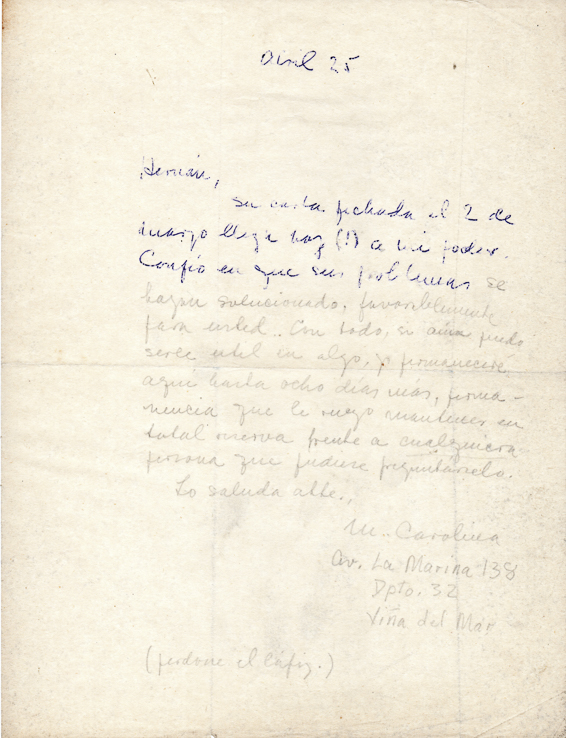 Abril 25
Hernán,
su carta fechada el 2 de
marzo llega hoy (!) a mi poder.
Confío en que sus problemas se
hayan solucionado, favorablemente
para usted. Con todo, si aún puedo
serle util en algo, permaneceré
aquí hasta ocho días más, perma-
nencia que le ruego mantener en
total reserva frente a cualquiera
persona que pudiese preguntárselo.
Lo saluda atte.,
M. Carolina
Av. La Marina 138
Dpto. 32
Viña del Mar
(perdone el lápiz.)